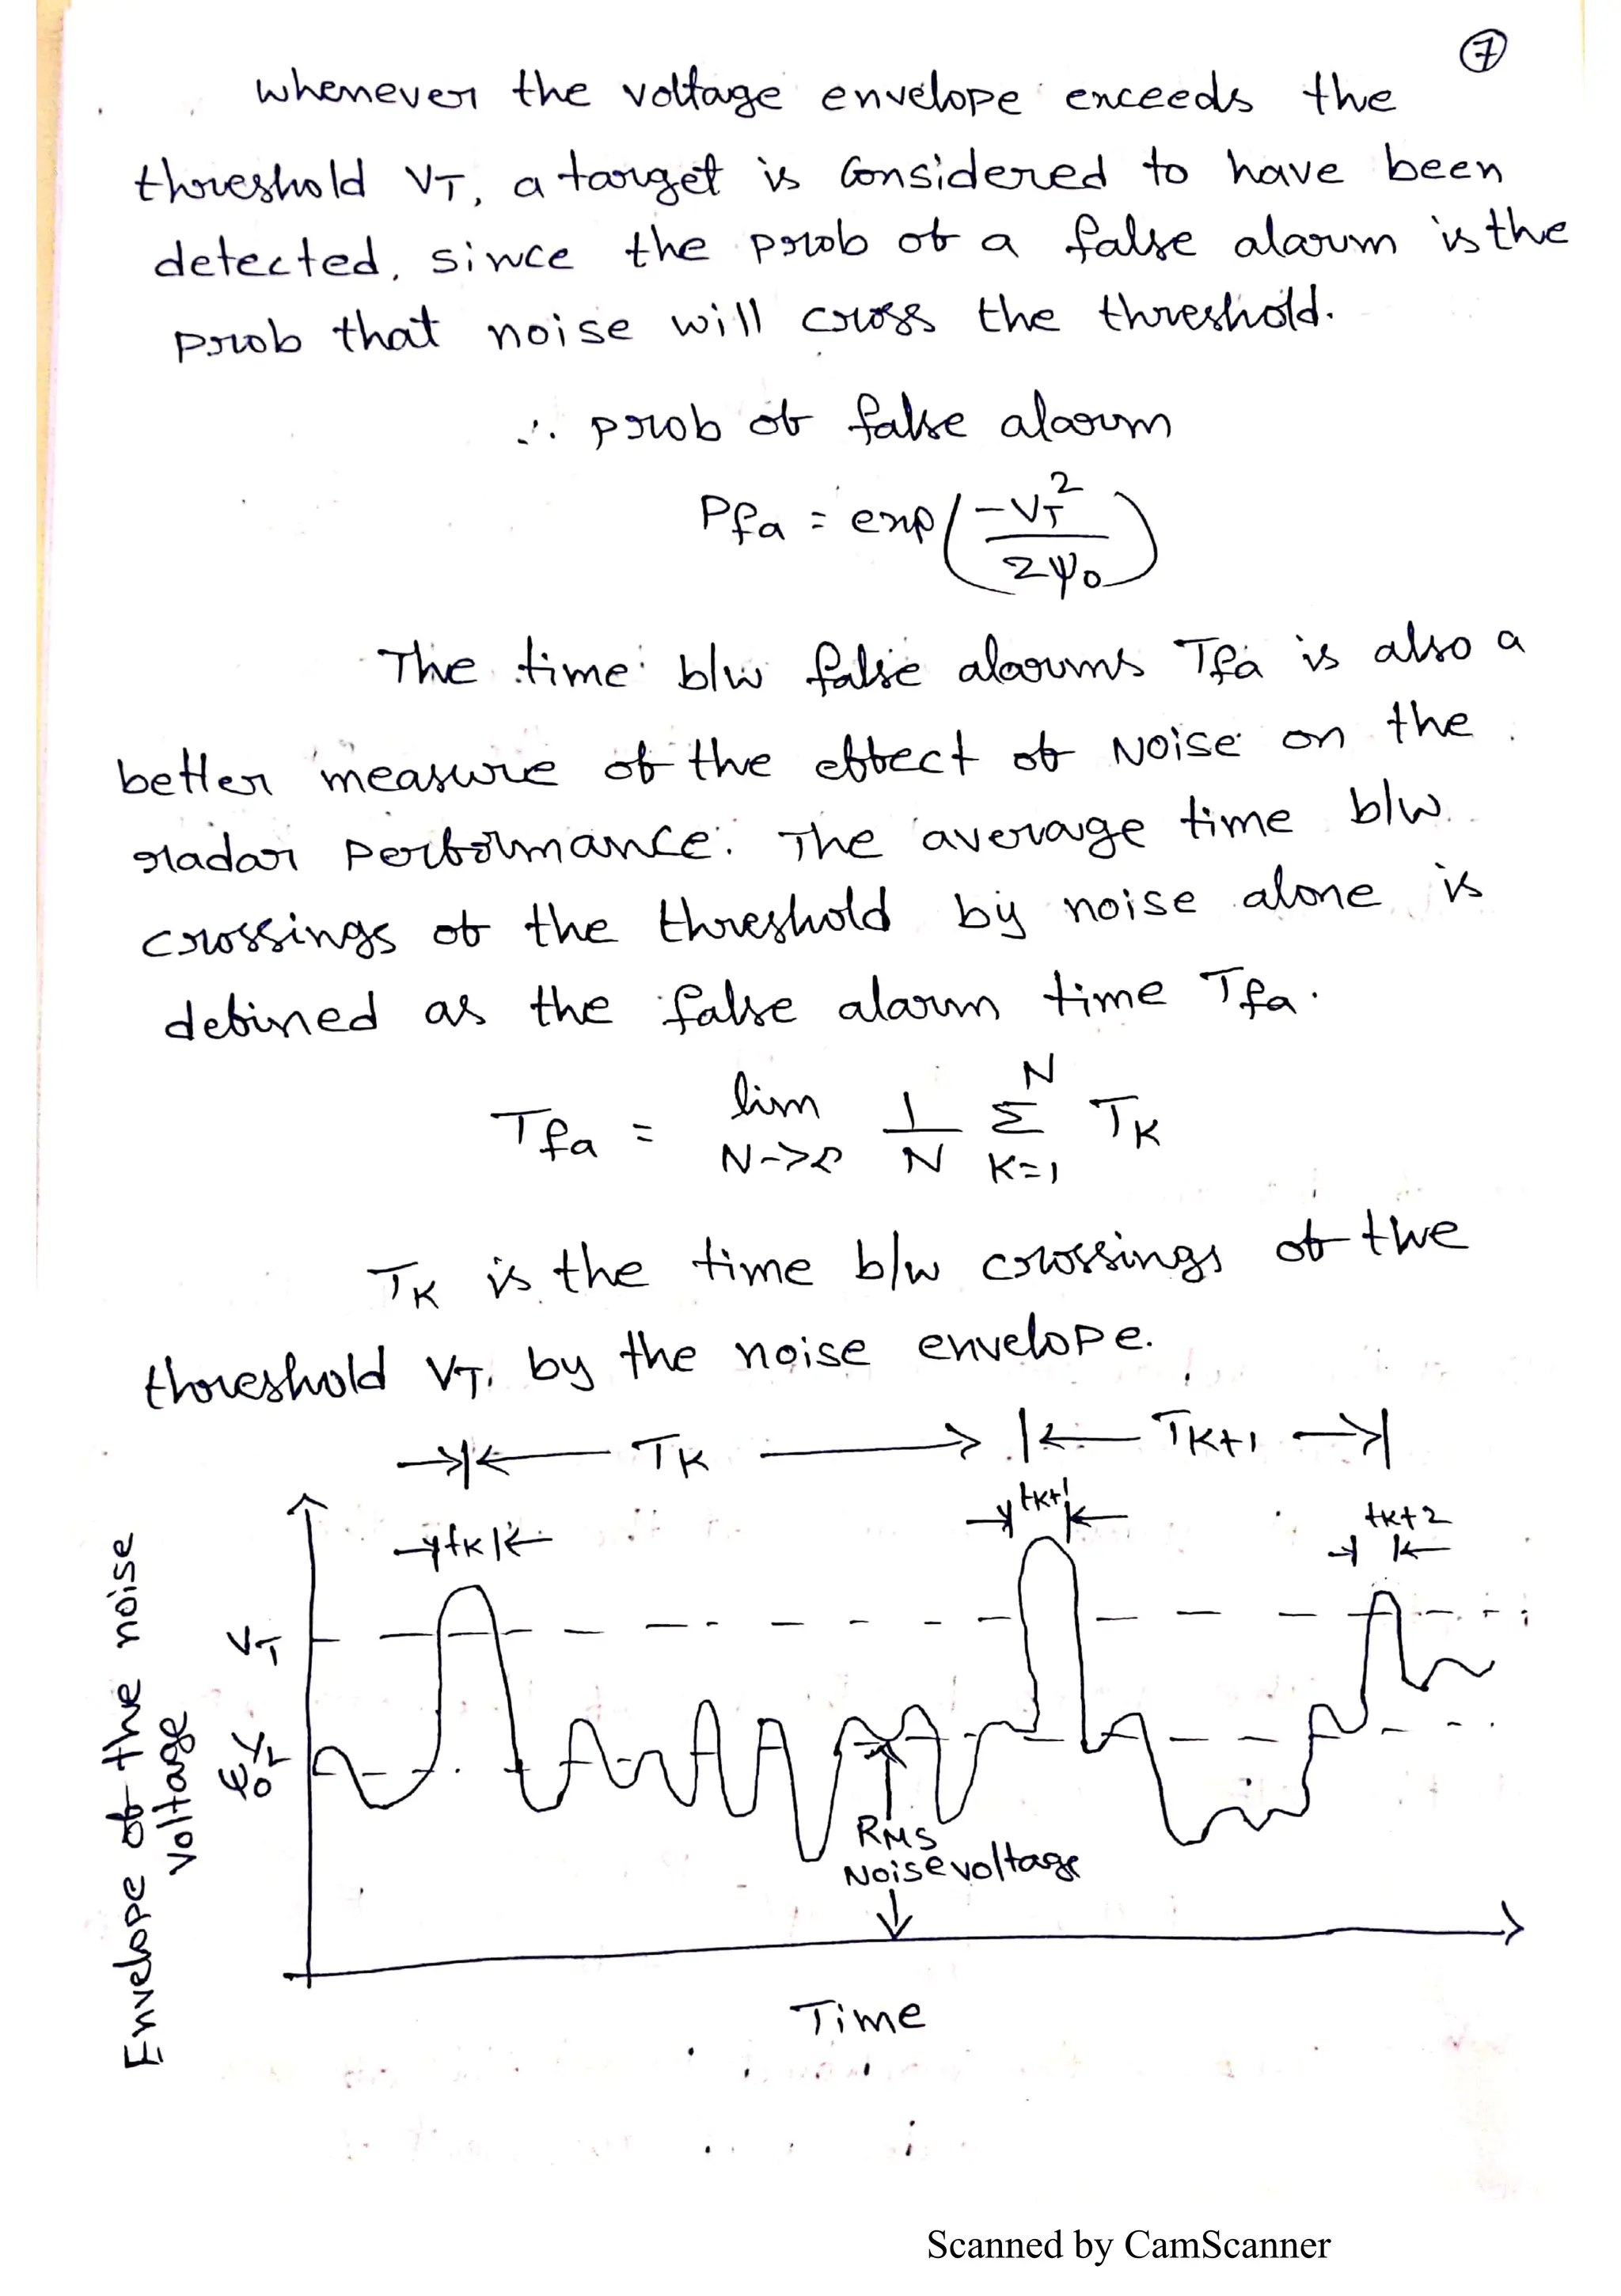 7
whenever the voltage envelope exceeds the
threshold VT, a target is considered to have been
detected, since the prob of a false alarm is the
prob that noise will cross the threshold.
∴ prob of false alarm
Pfa = exp(-VT²/2Ψ0)
The time b/w false alarms Tfa is also a
better measure of the effect of Noise on the
radar performance. The average time b/w
crossings of the threshold by noise alone is
defined as the false alarm time Tfa.
Tfa = lim N->∞ 1/N Σ K=1 N TK
TK is the time b/w crossings of the
threshold VT by the noise envelope.
TK TK+1
tK tK+1 tK+2
VT
Ψ0^1/2
Envelope of the noise
voltage
RMS
Noise voltage
Time
Scanned by CamScanner